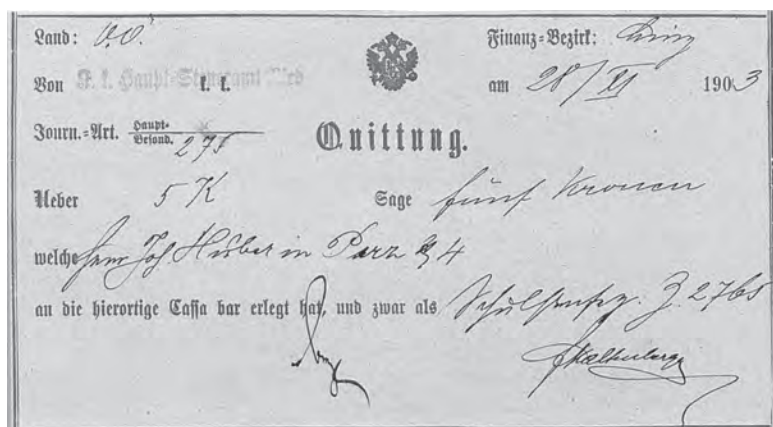 Land: O.Ö. Finanz-Bezirk: Linz
Von K. k. Haupt-Steueramt k. k. am 28/XI 1903
Journ.-Art. Haupt- Besond. 275
Quittung.
Ueber 5 K Sage fünf Kronen
welche Herr Joh Huber in Parz 4
an die hierortige Cassa bar erlegt hat, und zwar als Z. 2765